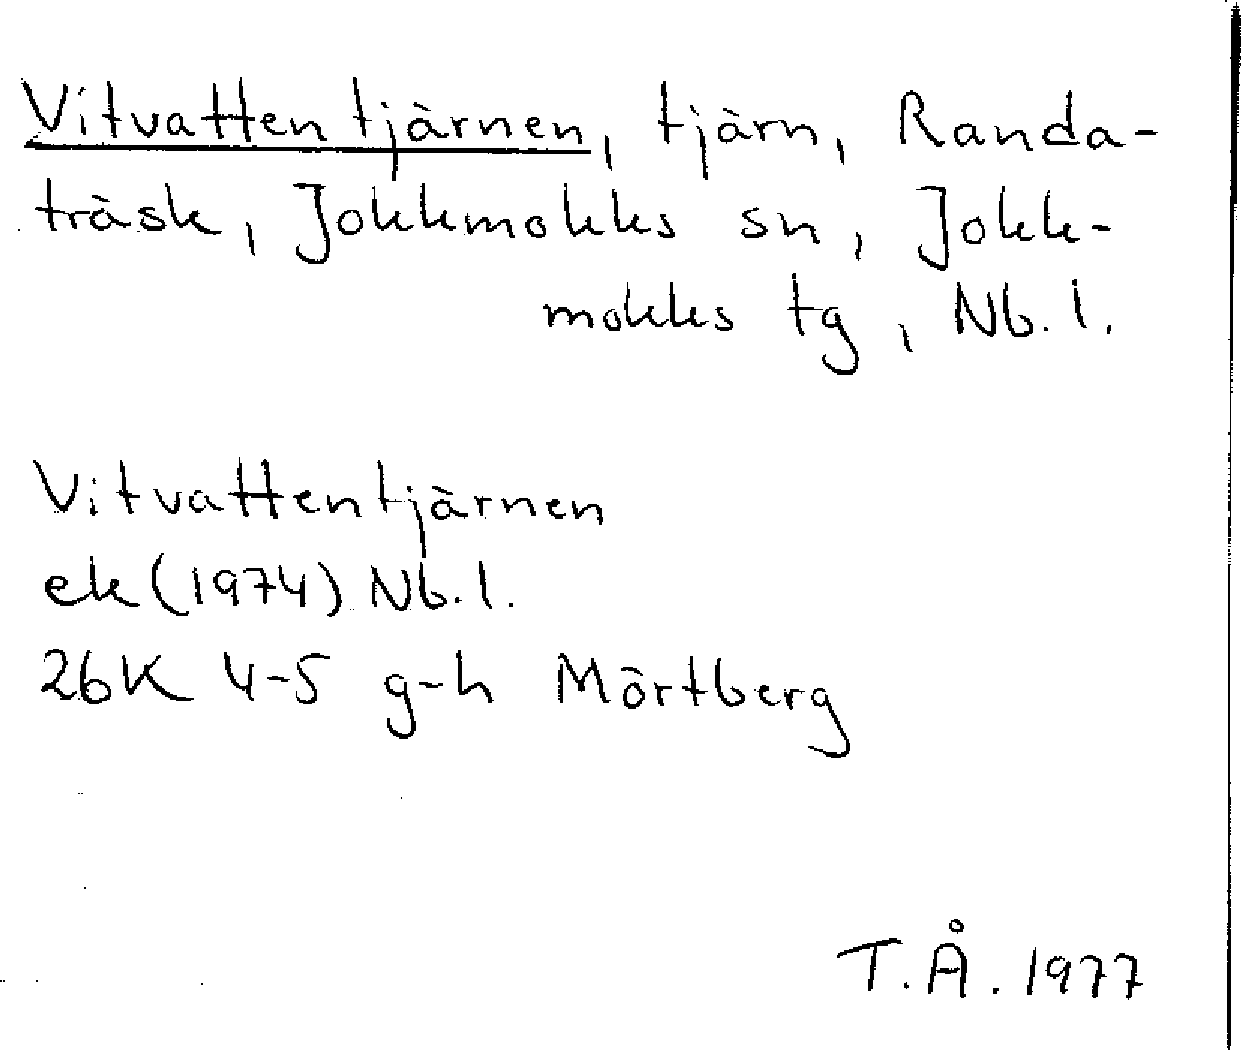 Vitvattentjärnen, tjärn, Randa-
träsk, Jokkmokks sn, Jokk-
mokks tg, Nb. l.
Vitvattentjärnen
ek (1974) Nb. l.
26K 4-5 g-h Mörtberg
T.Å. 1977